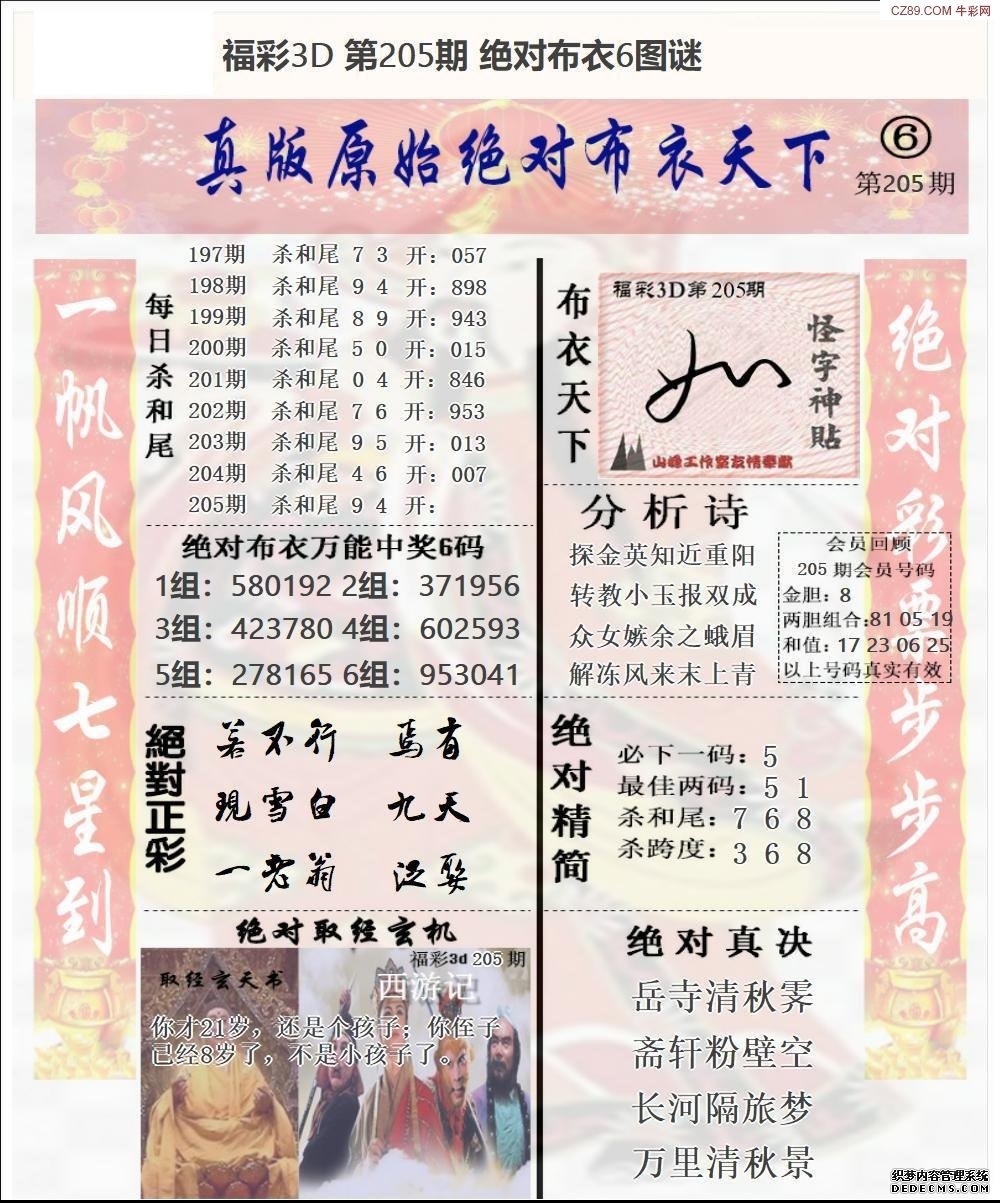 CZ89.COM 牛彩网
福彩3D 第205期 绝对布衣6图谜
真版原始绝对布衣天下
⑥
第205期
一帆风顺七星到
每日杀和尾
197期 杀和尾 7 3 开：057
198期 杀和尾 9 4 开：898
199期 杀和尾 8 9 开：943
200期 杀和尾 5 0 开：015
201期 杀和尾 0 4 开：846
202期 杀和尾 7 6 开：953
203期 杀和尾 9 5 开：013
204期 杀和尾 4 6 开：007
205期 杀和尾 9 4 开：
绝对布衣万能中奖6码
1组：580192 2组：371956
3组：423780 4组：602593
5组：278165 6组：953041
絕對正彩
若不行 焉有
現雪白 九天
一老翁 泛娶
绝对取经玄机
福彩3d 205期
取经玄天书
西游记
你才21岁，还是个孩子；你侄子
已经8岁了，不是小孩子了。
布衣天下
福彩3D第205期
怪字神贴
山峰工作室友情奉献
分析诗
探金英知近重阳
转教小玉报双成
众女嫉余之蛾眉
解冻风来末上青
会员回顾
205期会员号码
金胆：8
两胆组合:81 05 19
和值：17 23 06 25
以上号码真实有效
绝对精简
必下一码：5
最佳两码：5 1
杀和尾：7 6 8
杀跨度：3 6 8
绝对真决
岳寺清秋霁
斋轩粉壁空
长河隔旅梦
万里清秋景
绝对彩票步步高
织梦内容管理系统
DEDECMS.COM